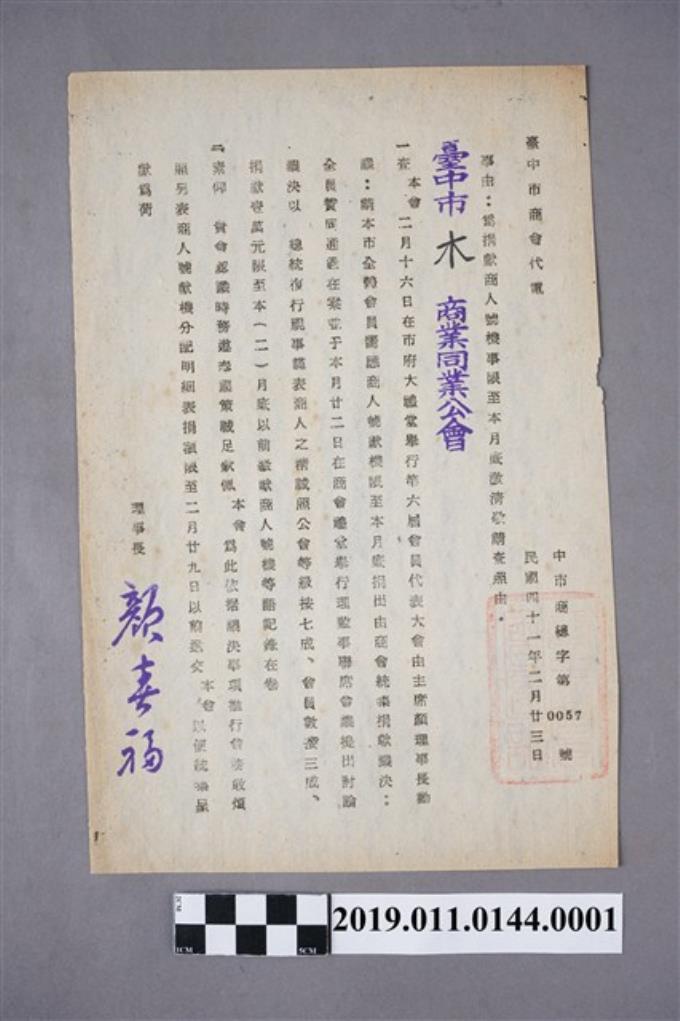 臺中市商會代電
中市商穗字第0057號
民國四十一年二月廿三日
事由:為捐獻商人號機事限至本月底激清敬請查照由。
臺中市木商業同業公會
一查本會二月十六日在市府大禮堂舉行第六屆會員代表大會由主席顏理事長動
議:請本市全體會員響應商人號獻機限至本月底捐出由商會統彙捐獻議決:
全員贊同通過在案並于本月廿二日在商會禮堂舉行理監事聯席會議提出討論
議決以 總統復行視事謹表商人之精誠照公會等級按七成、會員數按三成、
捐獻壹萬元限至本(二)月底以前繳獻商人號機等語記錄在卷
二素仰 貴會認識時務遵奉國策誠足欽佩本會為此依據議決事項推行會務敢煩
照另表商人號獻機分配明細表捐額限至二月廿九日以前送交本會以便統彙呈
獻為荷
理事長
顏春福
2019.011.0144.0001
1CM
2CM
5CM